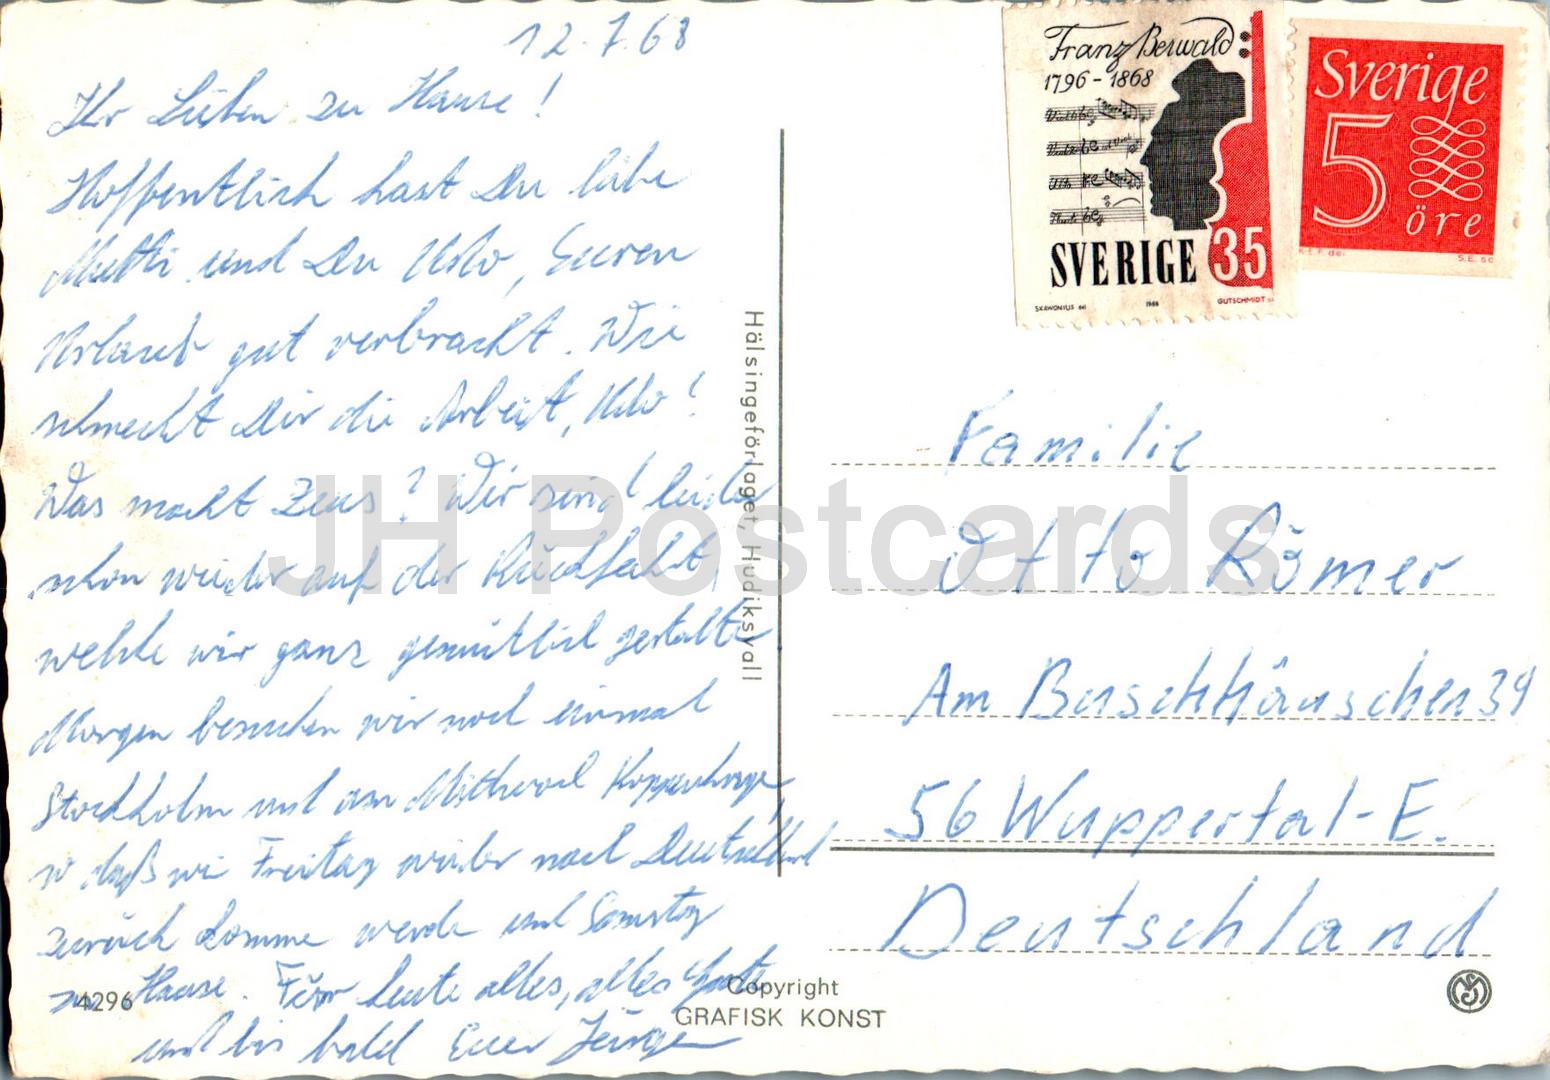 12.7.68
Ihr Lieben zu Hause!
Hoffentlich hast Du liebe
Mutti und Du Udo, Euren
Urlaub gut verbracht. Wie
schmeckt Dir die Arbeit, Udo!
Was macht Zeus? Wir sind leider
schon wieder auf der Rückfahrt,
welche wir ganz gemütlich gestalte
Morgen besuchen wir noch einmal
Stockholm und am Mittwoch Koppenhagen,
so daß wir Freitag wieder nach Deutschland
zurück komme werde und Samstag
zu Hause. Für heute alles, alles Gute
und bis bald Euer Jürgen
4296
Hälsingeförlaget, Hudiksvall
Copyright
GRAFISK KONST
Franz Berwald
1796-1868
SVERIGE 35
SKAWONIUS del 1968 GUTSCHMIDT sc
Sverige
5
öre
S.E. sc
Familie
Otto Römer
Am Buschhäuschen 39
56 Wuppertal-E.
Deutschland
JH Postcards